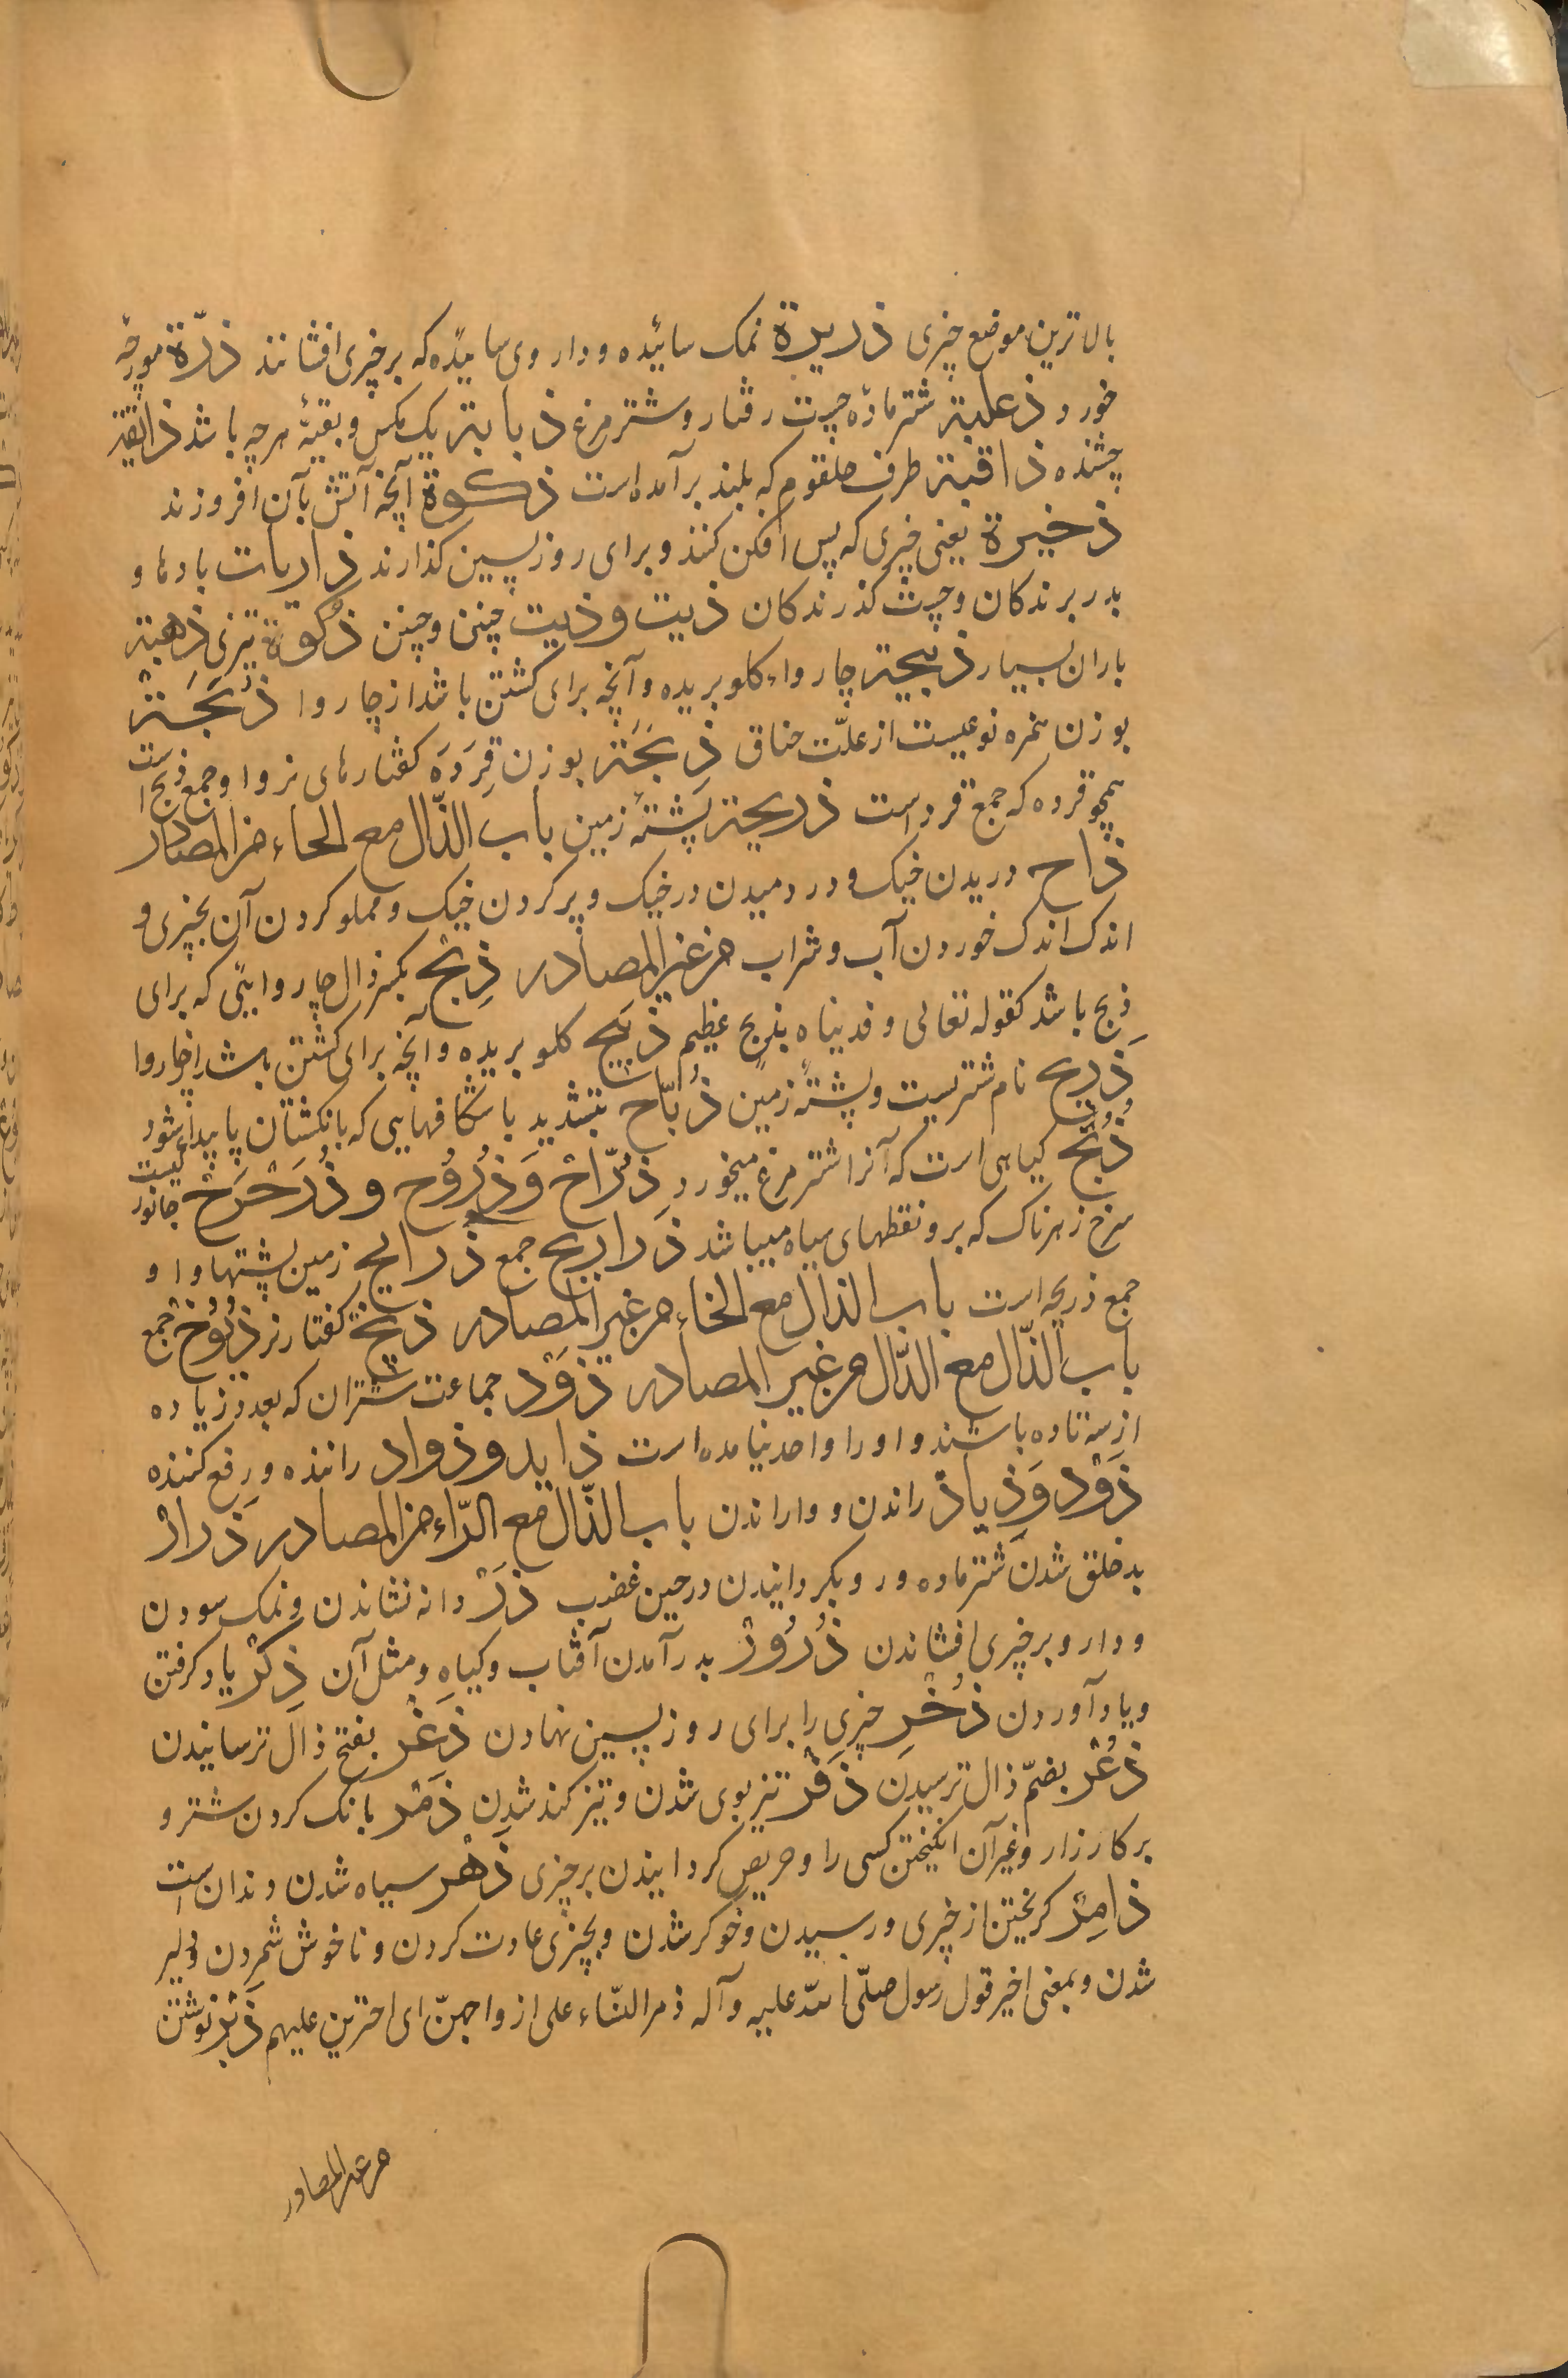 بالاترین موضع چیزی ذریرة نمک سائیده و داروی سائیده که بر چیزی افشانند ذرّة مورچهٔ
خورد ذعلبة شتر مادّه چست رفتار و شترمرغ ذبابة یک مکس و بقیّهٔ هرچه باشد ذائقة
چشنده ذاقنة طرف حلقوم که بلند برآمده است ذکوة آنچه آتش بآن افروزند
ذخیرة یعنی چیزی که پس افکن کنند و برای روز پسین کذارند ذاریات بادها و
بدر برندکان و چست کذرندکان ذیت و ذیت چنین و چنین ذکوة تیزی ذهبة
باران بسیار ذبیحة چاروا، کلو بریده و آنچه برای کشتن باشد از چاروا ذُبَحَة
بوزن همزه نوعیست از علّت خناق ذِیَخَة بوزن قِرَدَه کفتارهای نر و او جمع ذیخ است
همچو قرده که جمع قرد است ذریحة پشتهٔ زمین باب الذّال مع الحاء من المصادر
ذاح دریدن خیک و در دمیدن در خیک و پر کردن خیک و مملو کردن آن بچیزی و
اندک اندک خوردن آب و شراب من غیر المصادر ذِبْح بکسر ذال چاروایئی که برای
ذبح باشد کقوله تعالی و فدیناه بذبح عظیم ذَبیح کلو بریده و آنچه برای کشتن باشد از چاروا
ذَریح نام شتریست و پشتهٔ زمین ذُبّاح بتشدید با شکافهایی که بانکشتان پا پیدا شود
ذُبَح کیاهی است که آنرا شترمرغ میخورد ذُرّاح وَذُرُّوح و ذُرَحْرَح جانوریست
سرخ زهرناک که برو نقطهای سیاه میباشد ذَراریح جمع ذَرایح زمین پشتها و او
جمع ذریحه است باب الذال مع الخاء من غیر المصادر ذیخ کفتار نر ذُیُوخ جمع
باب الذّال مع الدّال من غیر المصادر ذَوْد جماعت شتران که بعدد زیاده
از سه تا ده باشند و او را واحد نیامده است ذاید و ذواد راننده و رفع کننده
ذَوْد وَذِیاد راندن و واراندن باب الذّال مع الرّاء من المصادر ذَرار
بدخلق شدن شتر ماده و رو بکردانیدن در حین غضب ذَرّ دانه نشاندن و نمک سودن
و دارو بر چیزی افشاندن ذُرُور بدر آمدن آفتاب و کیاه و مثل آن ذِکْر یاد کرفتن
و یاد آوردن ذُخْر چیزی را برای روز پسین نهادن ذَعْر بفتح ذال ترسانیدن
ذُعْر بضمّ ذال ترسیدن ذَفَر تیز بوی شدن و تیز کند شدن ذَمْر بانک کردن شتر و
بر کارزار و غیر آن انکیختن کسی را و حریص کردانیدن بر چیزی ذَهَر سیاه شدن دندان است
ذامِر کریختن از چیزی و رسیدن و خوکر شدن و بچیزی عادت کردن و ناخوش شمردن و دلیر
شدن و بمعنی اخیر قول رسول صلّی الله علیه و آله ذمر النّساء علی ازواجهنّ ای اجترین علیهم ذَبْر نوشتن
من غیر المصادر